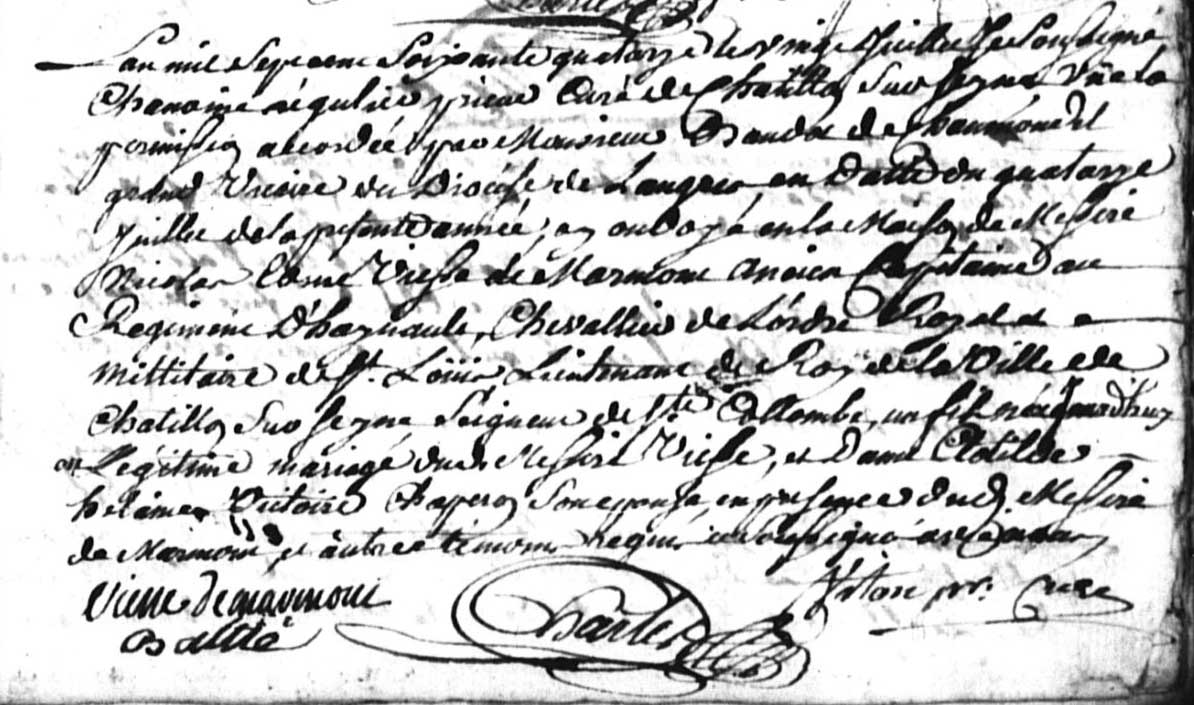 L'an mil Sept cent Soixante quatorze le vingt Juillet Je Soussigné
Chanoine régulier prieur Curé de Chatillon Sur Seyne Vû la
permission accordée par Monsieur de
grand Vicaire du Diocèse de Langres en Datte du quatorze
Juillet de la présente année, ay ondoyé en la Maison de Messire
Nicolas Edme Viesse de Marmont ancien Capitaine au
Regiment D'haynault, Chevallier de L'ordre Royal et
millitaire de St. Loüis, Lieutenant de Roy de la Ville de
Chatillon Sur Seyne Seigneur de Ste Collombe, un fils né aujourd'huy
en Légitime mariage dud. Messire Viesse, et Dame Clotilde
hélaine Victoire Chaperon Son épouse, en présence dud. Messire
de Marmont et autres témoins Requis et Soussigné avec nous
Viesse de marmont
prr. Curé